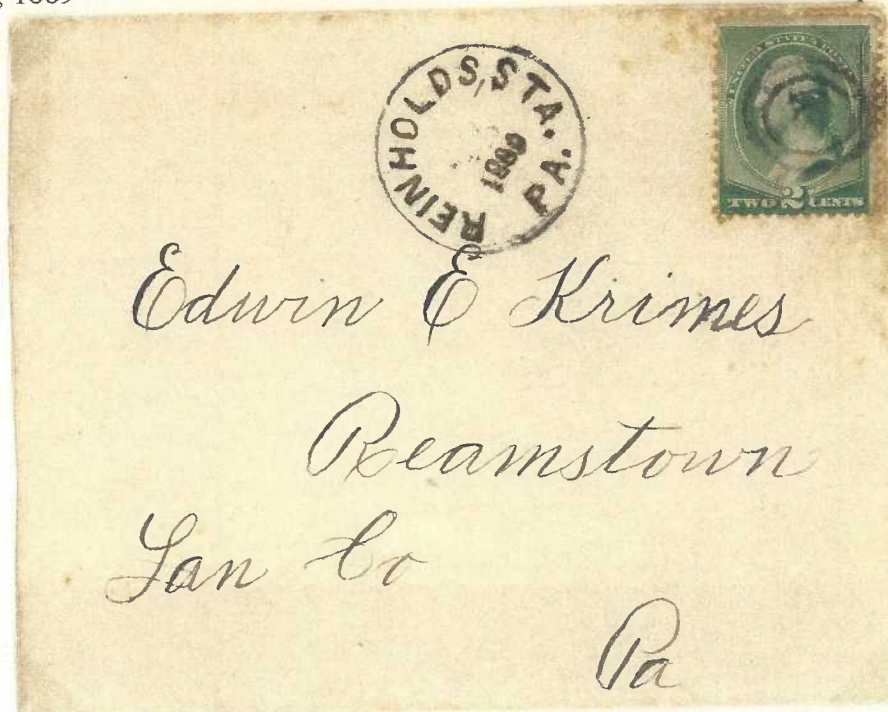 REINHOLDS, STA. PA.
1889
UNITED STATES POSTAGE
TWO 2 CENTS
Edwin E Krimes
Reamstown
Lan Co
Pa